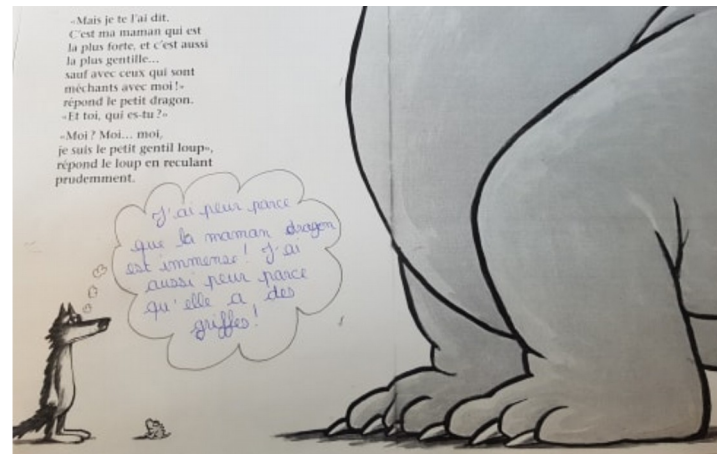 «Mais je te l'ai dit.
C'est ma maman qui est
la plus forte, et c'est aussi
la plus gentille...
sauf avec ceux qui sont
méchants avec moi!»
répond le petit dragon.
«Et toi, qui es-tu?»
«Moi? Moi... moi,
je suis le petit gentil loup»,
répond le loup en reculant
prudemment.
J'ai peur parce
que la maman dragon
est immense! J'ai
aussi peur parce
qu'elle a des
griffes!